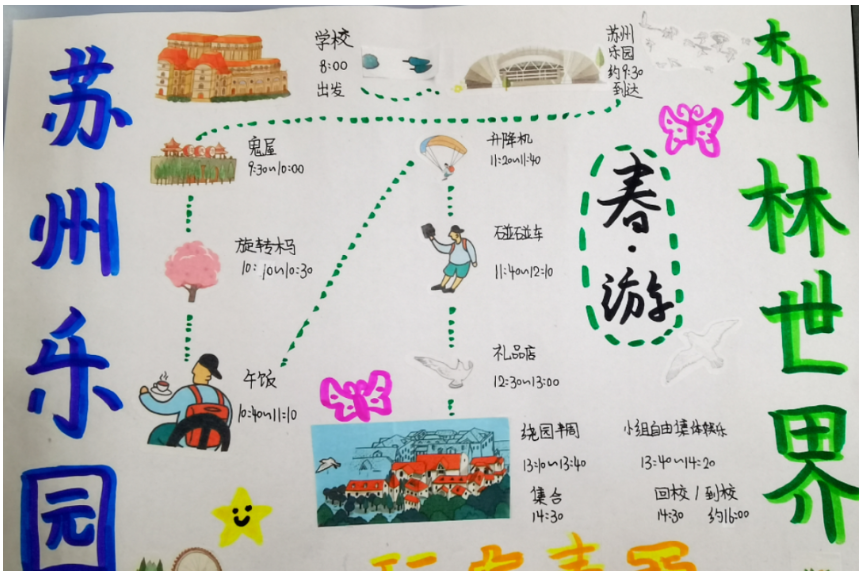 苏州乐园
森林世界
春·游
学校
8:00
出发
苏州
乐园
约9:30
到达
鬼屋
9:30~10:00
旋转木马
10:10~10:30
午饭
10:40~11:10
升降机
11:20~11:40
碰碰车
11:40~12:10
礼品店
12:30~13:00
绕园半周
13:10~13:40
小组自由集体娱乐
13:40~14:20
集合
14:30
回校/到校
14:30 约16:00